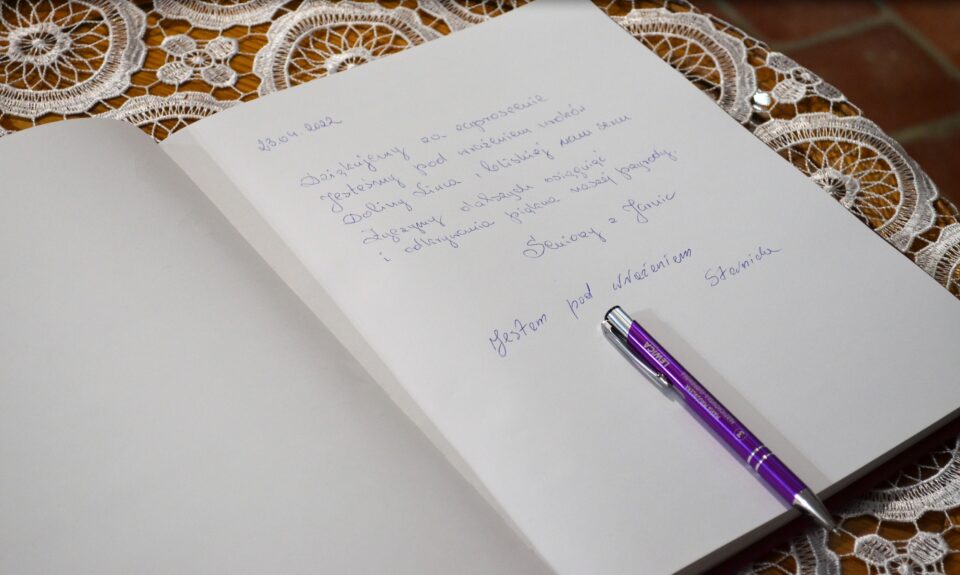 23.04.2022
Dziękujemy za zaproszenie
Jesteśmy pod wrażeniem uroków
Doliny i bliskiej nam
Życzymy dalszych osiągnięć
i odkrywania piękna naszej przyrody.
Seniorzy z
Jestem pod wrażeniem
LEWICA